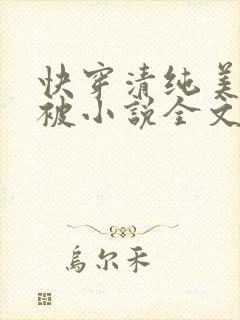 快穿清纯美
被小説全文
烏尔禾